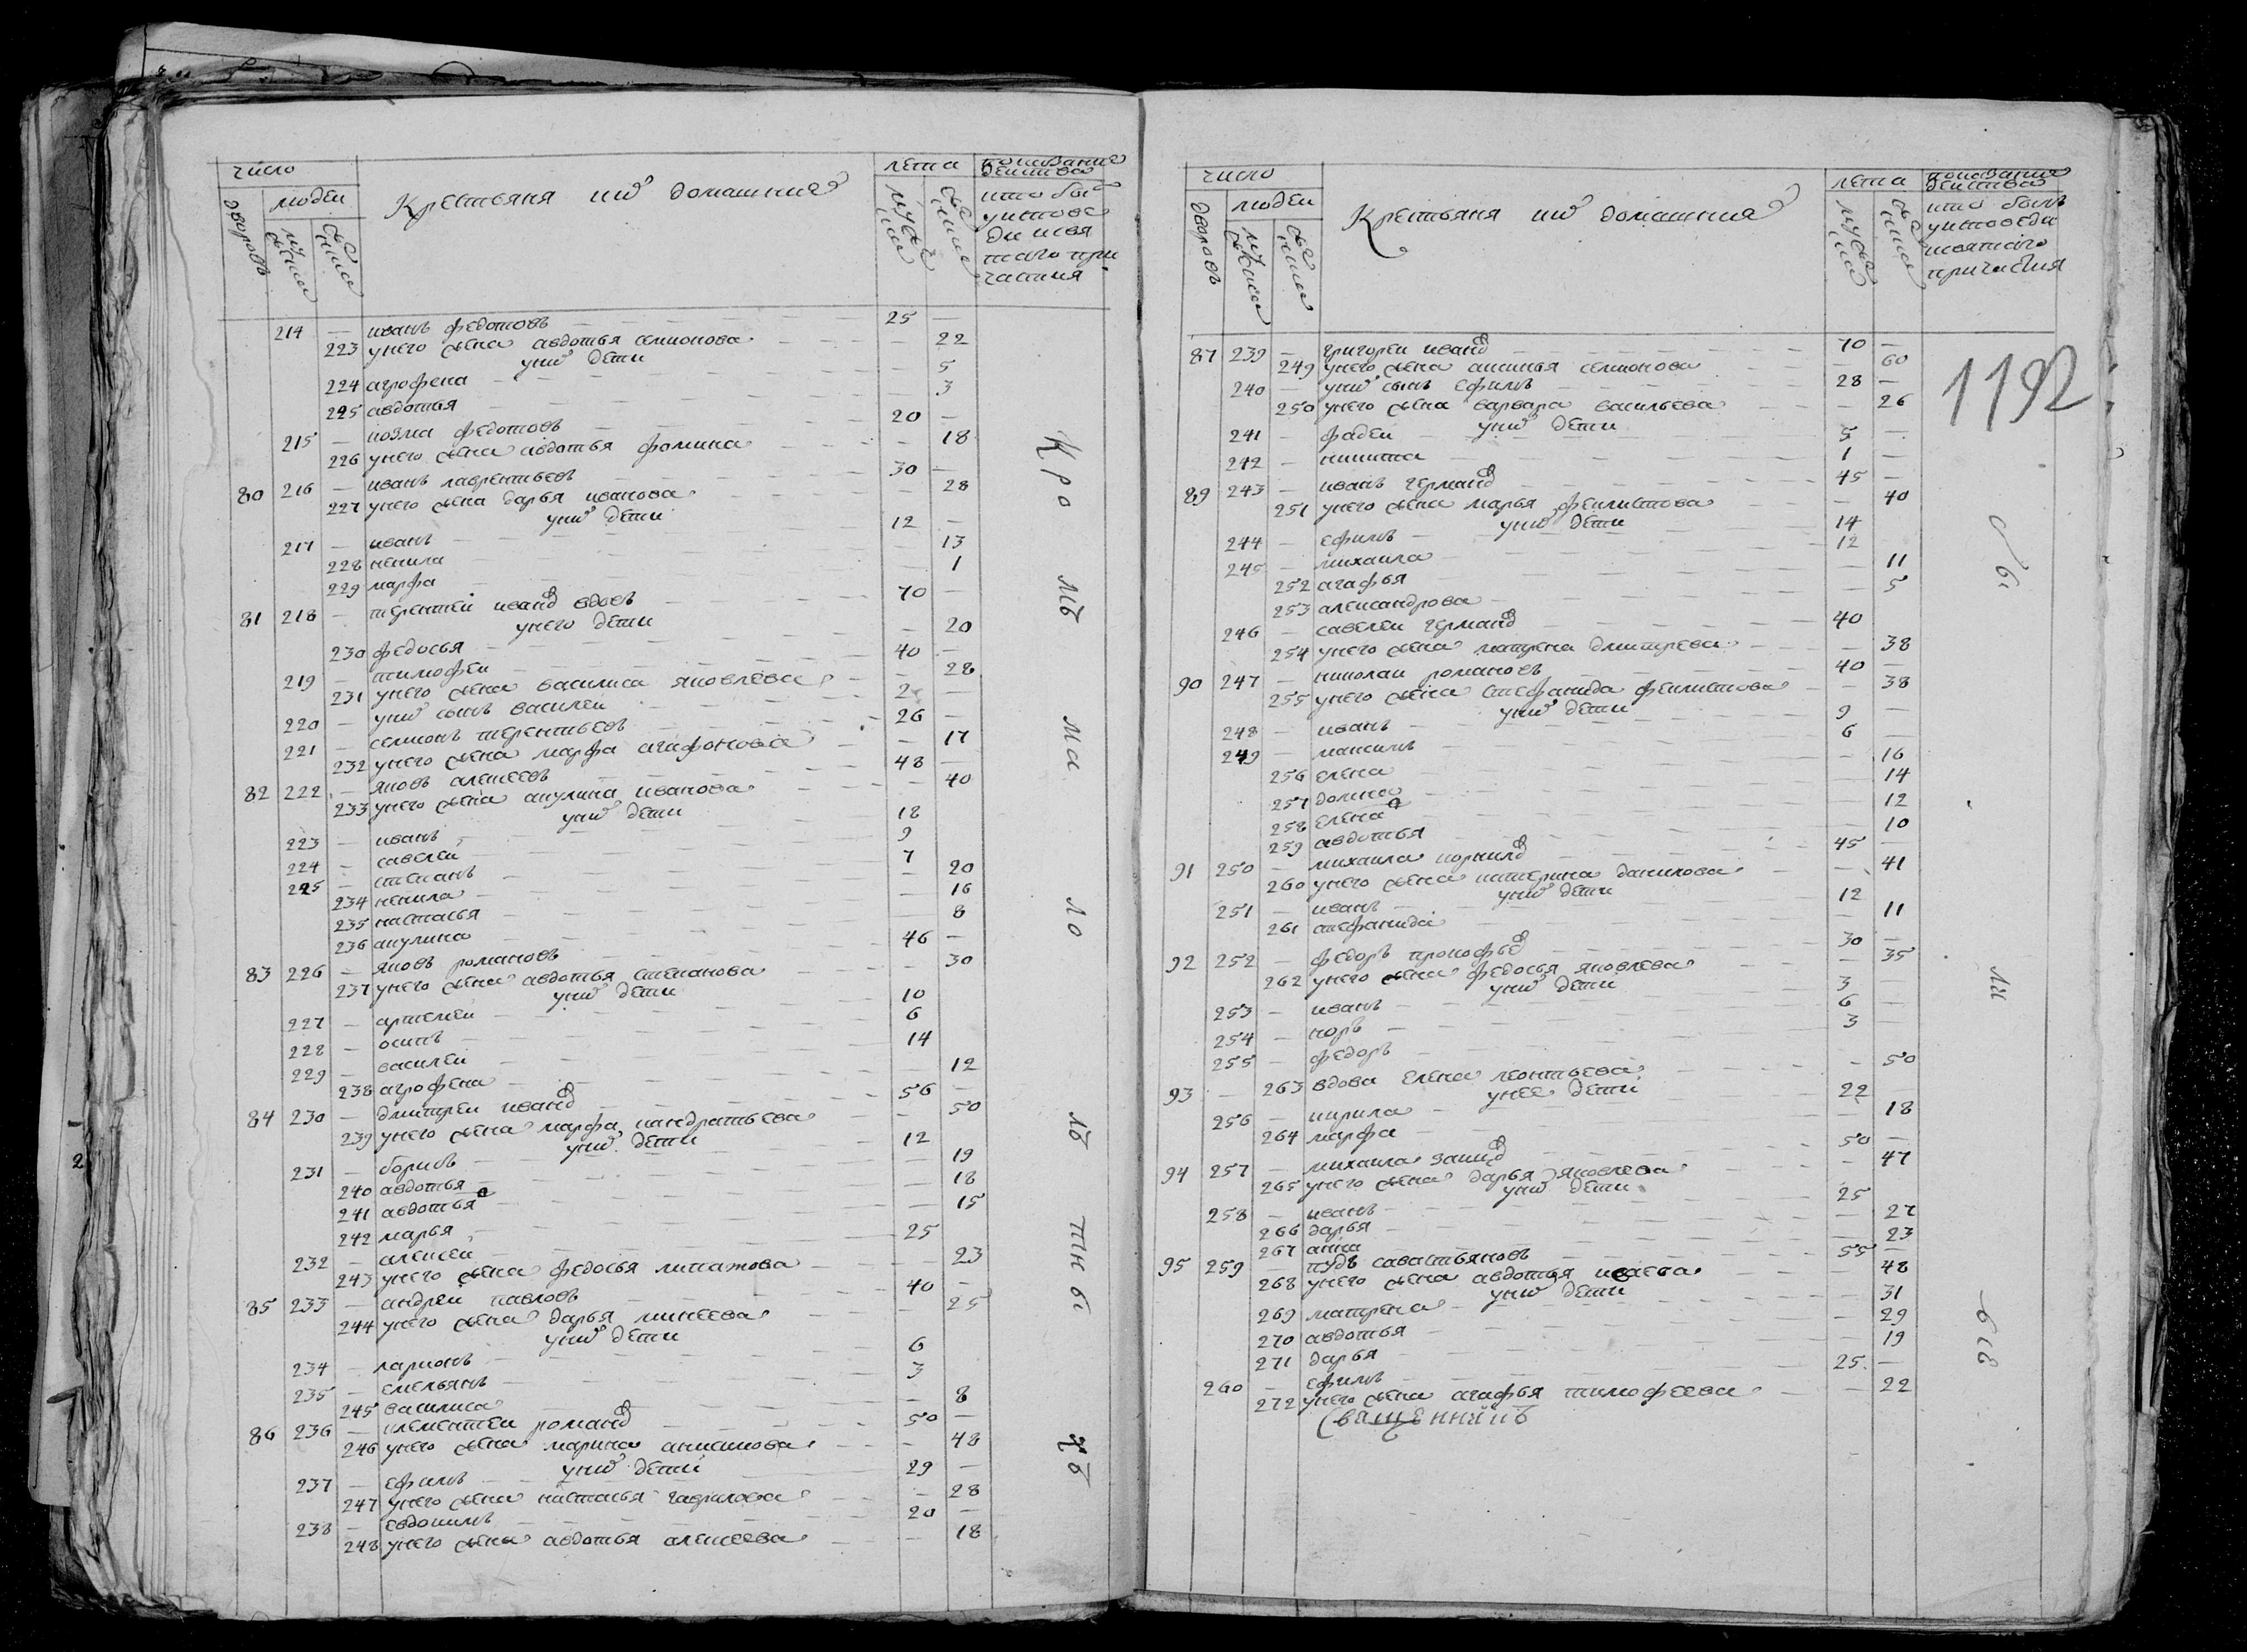 число
людей
дворовъ
мужеска
женска
Крестьяня ихъ домашния
лета
мужеска
женска
показание
действа
кто былъ
у испове
ди и свя
таго при
частия
214 — иванъ федотовъ — 25 —
223 у него жена авдотья семионова — — 22
у них дети
224 агрофена — — 5
225 авдотья — — 3
215 — козма федотовъ — 20 —
226 у него жена авдотья фомина — — 18
80 216 — иванъ лаврентьевъ — 30 —
227 у него жена дарья иванова — — 28
у них дети
217 — иванъ — 12 —
228 ненила — — 13
229 марфа — — 1
81 218 — терентей иванов вдовъ — 70 —
у него дети
230 федосья — — 20
219 — тимофеи — 40 —
231 у него жена василиса яковлева — — 28
220 — у них сынъ василеи — 2 —
221 — семионъ терентьевъ — 26 —
232 у него жена марфа агафонова — — 17
82 222 — яковъ алексеевъ — 48 —
233 у него жена акулина иванова — — 40
у них дети
223 — иванъ — 18
224 — савелеи — 9
225 — степанъ — 7
234 ненила — — 20
235 настасья — — 16
236 акулина — — 8
83 226 — яковъ романовъ — 46 —
237 у него жена авдотья степанова — — 30
у них дети
227 — артемеи — 10
228 — осипъ — 6
229 — василеи — 14
238 агрофена — — 12
84 230 — дмитреи иванов — 56 —
239 у него жена марфа кандратьева — — 50
у них дети
231 — борисъ — 12
240 авдотья — — 19
241 авдотья — — 18
242 марья — — 15
232 — алексеи — 25
243 у него жена федосья липатова — — 23
85 233 — андреи павловъ — 40 —
244 у него жена дарья минеева — — 25
у них дети
234 — ларионъ — 6
235 — емельянъ — 3
245 василиса — — 8
86 236 — клементеи романов — 50 —
246 у него жена марина анисимова — — 48
у них дети
237 — ефимъ — 29 —
247 у него жена настасья гаврилова — — 28
238 — евдокимъ — 20 —
248 у него жена авдотья алексеева — — 18
Кро мѣ ма ло лѣ тны хъ
число
людей
дворовъ
мужеска
женска
Крестьяня ихъ домашния
лета
мужеска
женска
показание
действа
кто былъ
у исповеди
и святаго
причастия
1192
87 239 — григореи иванов — 70 —
249 у него жена аксинья семионова — — 60
240 — у них сынъ ефимъ — 28 —
250 у него жена варвара васильева — — 26
у них дети
241 — фадеи — 5 —
242 — никита — 1 —
89 243 — иванъ герман — 45 —
251 у него жена марья феилистова — — 40
у них дети
244 — ефимъ — 14
245 — михаила — 12
252 агафья — — 11
253 александрова — — 5
246 — савелеи герман — 40
254 у него жена матрена дмитрева — — 38
90 247 — николаи романовъ — 40 —
255 у него жена стефанида феилистова — — 38
у них дети
248 — иванъ — 9 —
249 — максимъ — 6 —
256 елена — — 16
257 домна — — 14
258 елена — — 12
259 авдотья — — 10
91 250 — михаила корнил — 45 —
260 у него жена катерина данилова — — 41
у них дети
251 — иванъ — 12
261 стефанида — — 11
92 252 — федоръ прокофьев — 30 —
262 у него жена федосья яковлева — — 35
у них дети
253 — иванъ — 3 —
254 — карпъ — 6 —
255 — федоръ — 3 —
93 — 263 вдова елена леонтьева — — 50
у нее дети
256 — кирила — 22
264 марфа — — 18
94 257 — михаила — 50 —
265 у него жена дарья яковлева — — 47
у них дети
258 — иванъ — 25
266 дарья — — 27
267 анна — — 23
95 259 — пудъ савастьяновъ — 55 —
268 у него жена авдотья исаева — — 48
у них дети
269 матрена — — 31
270 авдотья — — 29
271 дарья — — 19
260 — ефимъ — 25 —
272 у него жена агафья тимофеева — — 22
Священникъ
бы ли